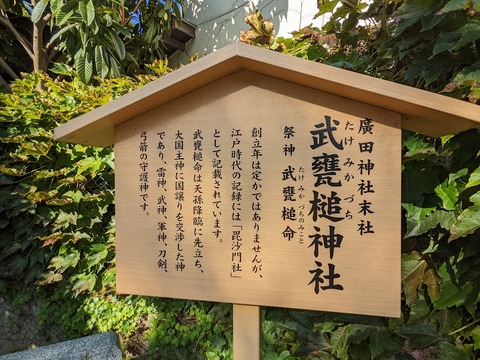 廣田神社末社
たけみかづち
武甕槌神社
たけみかづちのみこと
祭神 武甕槌命
創立年は定かではありませんが、
江戸時代の記録には「毘沙門社」
として記載されています。
武甕槌命は天孫降臨に先立ち、
大国主神に国譲りを交渉した神
であり、雷神、武神、軍神、刀剣、
弓箭の守護神です。